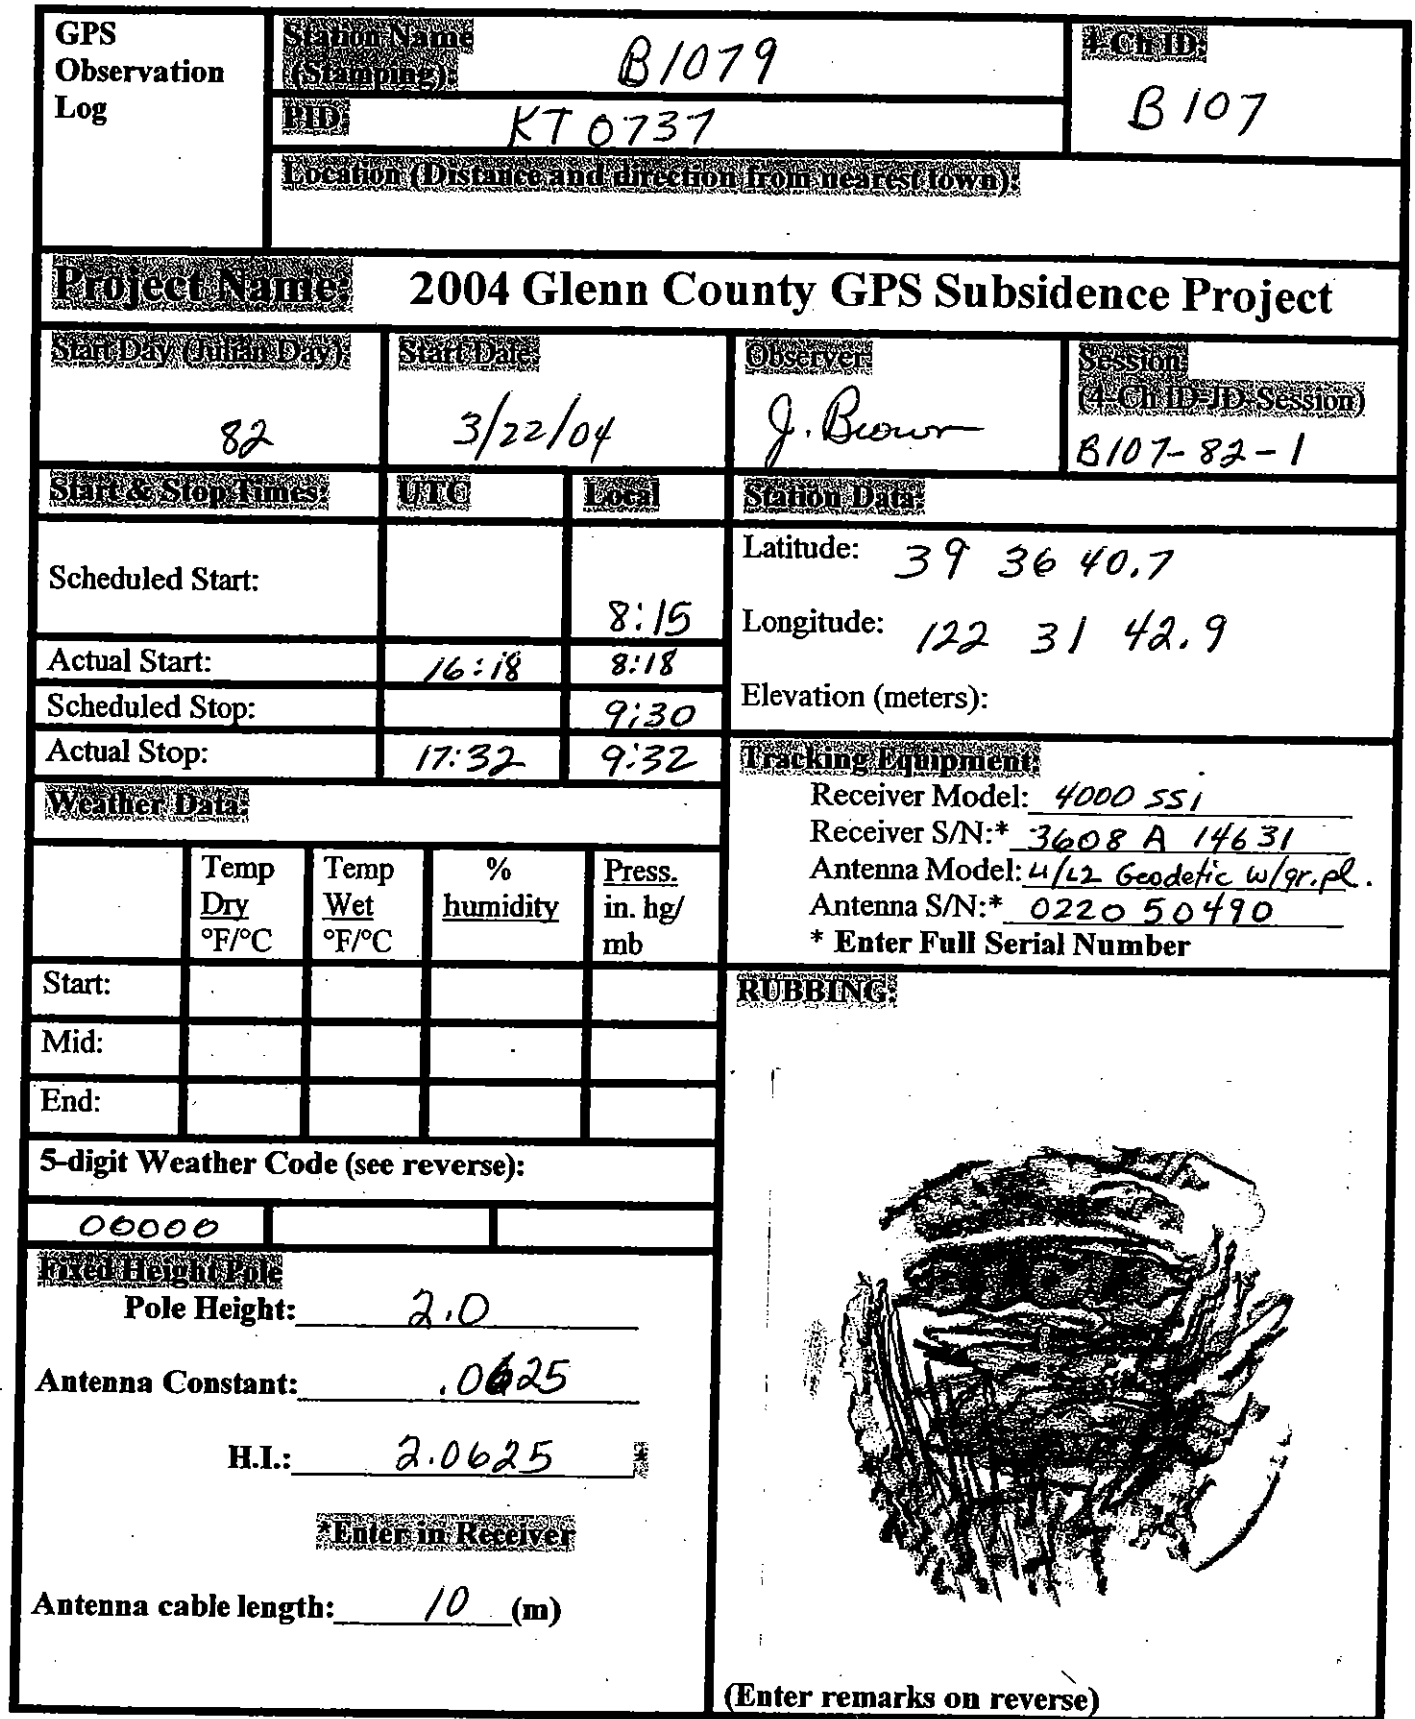 GPS
Observation
Log
Station Name
(Stamping):
B1079
PID:
KT 0737
4-Ch ID:
B107
Location (Distance and direction from nearest town):
Project Name: 2004 Glenn County GPS Subsidence Project
Start Day (Julian Day):
82
Start Date:
3/22/04
Observer:
J. Brown
Session:
(4-Ch ID-JD-Session)
B107-82-1
Start & Stop Times: UTC Local
Scheduled Start: 8:15
Actual Start: 16:18 8:18
Scheduled Stop: 9:30
Actual Stop: 17:32 9:32
Station Data:
Latitude: 39 36 40.7
Longitude: 122 31 42.9
Elevation (meters):
Tracking Equipment:
Receiver Model: 4000 SSi
Receiver S/N:* 3608 A 14631
Antenna Model: L1/L2 Geodetic w/gr.pl.
Antenna S/N:* 0220 50490
* Enter Full Serial Number
Weather Data:
Temp
Dry
°F/°C
Temp
Wet
°F/°C
%
humidity
Press.
in. hg/
mb
Start:
Mid:
End:
5-digit Weather Code (see reverse):
00000
Fixed Height Pole
Pole Height: 2.0
Antenna Constant: .0625
H.I.: 2.0625 *
*Enter in Receiver
Antenna cable length: 10 (m)
RUBBING:
(Enter remarks on reverse)